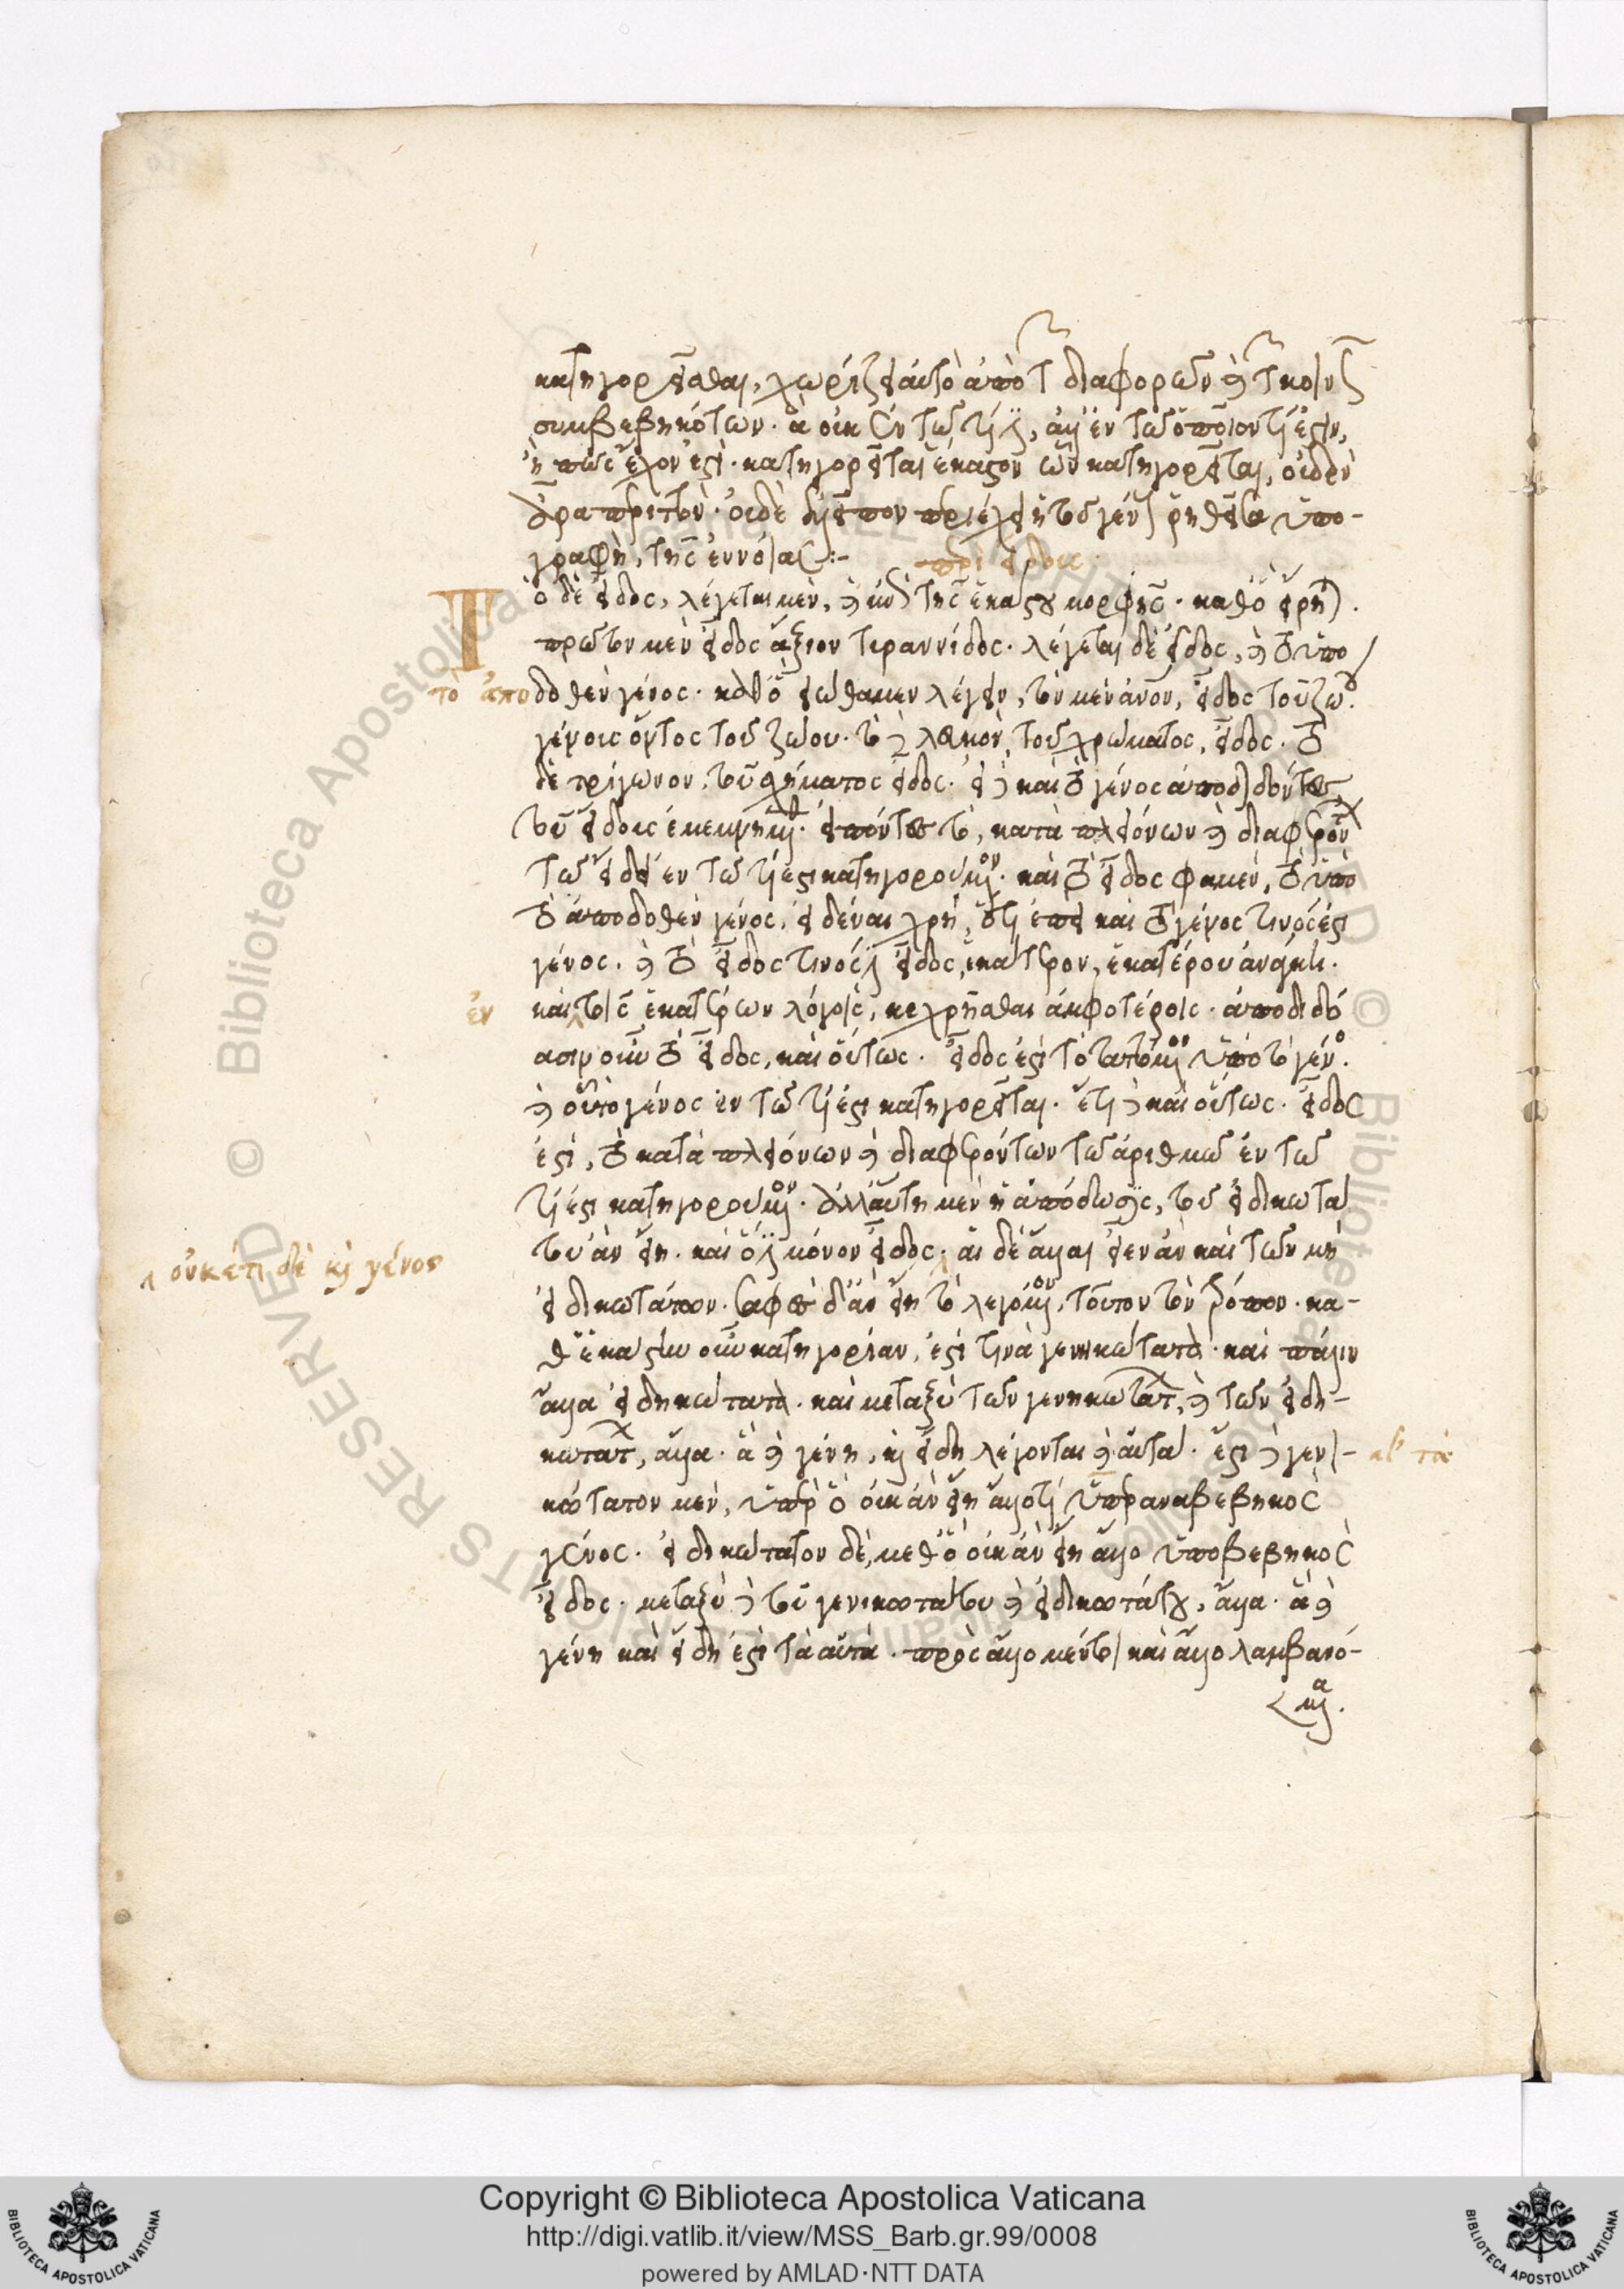 κατηγορεῖσθαι, χωρίζει αὐτὸ ἀπὸ τῶν διαφορῶν καὶ τῶν κοινῶς
συμβεβηκότων. ἃ οὐκ ἐν τῶ τί ἐστι, ἀλλ' ἐν τῶ ὁποῖον τί ἐστιν,
ἢ πῶς ἔχον ἐστὶ. κατηγορεῖται ἕκαστον ὧν κατηγορεῖται, οὐδὲν
ἄρα περιττὸν. οὐδὲ ἐλλεῖπον περιέχει ἡ τοῦ γένους ῥηθεῖσα ὑπο-
γραφὴ, τῆς ἐννοίας :-
περὶ εἴδους
Τὸ δὲ εἶδος, λέγεται μὲν, καὶ ἐπὶ τῆς ἑκάστου μορφῆς. καθὸ εἴρηται.
πρῶτον μὲν εἶδος ἄξιον τιραννίδος. λέγεται δὲ εἶδος, καὶ τὸ ὑπο
τὸ ἀποδοθὲν γένος. καθὸ εἰώθαμεν λέγειν, τὸν μὲν ἄνον, εἶδος τοῦ ζώου
γένους ὄντος τοῦ ζώου. τὸ δὲ λευκὸν, τοῦ χρώματος, εἶδος. τὸ
δὲ τρίγωνον, τοῦ σχήματος εἶδος. εἰ δὲ καὶ τὸ γένος ἀποδιδόντες
τοῦ εἴδους ἐμεμνήμεθα. εἰπόντες τὸ, κατὰ πλειόνων καὶ διαφερόντων
τῶ εἴδει ἐν τῶ τί ἐστι κατηγορούμενον. καὶ τὸ εἶδος φαμὲν, τὸ ὑπὸ
τὸ ἀποδοθὲν γένος, εἰδέναι χρὴ, ὅτι ἐπεὶ καὶ τὸ γένος τινός ἐστι
γένος. καὶ τὸ εἶδος τινός ἐστι εἶδος, ἑκάτερον, ἑκατέρου ἀνάγκη.
ἐν
καὶ τοῖς ἑκατέρων λόγοις, κεχρῆσθαι ἀμφοτέροις. ἀποδιδό
ασιν οὖν τὸ εἶδος, καὶ οὕτως. εἶδος ἐστὶ τὸ ταττόμενον ὑπὸ τὸ γένος.
καὶ οὗ τὸ γένος ἐν τῶ τί ἐστι κατηγορεῖται. ἔτι δὲ καὶ οὕτως. εἶδος
ἐστὶ, τὸ κατὰ πλειόνων καὶ διαφερόντων τῶ ἀριθμῶ ἐν τῶ
τί ἐστι κατηγορούμενον. ἀλλ' αὕτη μὲν ἡ ἀπόδωσις, τοῦ εἰδικωτά
του ἂν εἴη. καὶ ὅ ἐστι μόνον εἶδος. αἱ δὲ ἄλλαι εἶεν ἂν καὶ τῶν μὴ
οὐκέτι δὲ καὶ γένος
εἰδικωτάτων. σαφὲς δ' ἂν εἴη τὸ λεγόμενον, τοῦτον τὸν τρόπον. κα-
θ' ἑκάστην οὖν κατηγορίαν, ἐστί τινὰ γενικώτατα. καὶ πάλιν
ἄλλα εἰδηκώτατα. καὶ μεταξὺ τῶν γενηκωτάτων, καὶ τῶν εἰδη-
κωτάτων, ἄλλα. ἃ καὶ γένη, καὶ εἴδη λέγονται καὶ αὐτά. ἔστι δὲ γενι-
κώτατον μὲν, ὑπὲρ ὃ οὐκ ἂν εἴη ἄλλο τί ὑπεραναβεβηκὸς
γένος. εἰδικώτατον δὲ, μεθ' ὃ οὐκ ἂν εἴη ἄλλο ὑποβεβηκὸς
εἶδος. μεταξὺ δὲ τοῦ γενικωτάτου καὶ εἰδικωτάτου, ἄλλα. ἃ καὶ
γένη καὶ εἴδη ἐστὶ τὰ αὐτὰ. πρὸς ἄλλο μέντοι καὶ ἄλλο λαμβανό-
μενα.